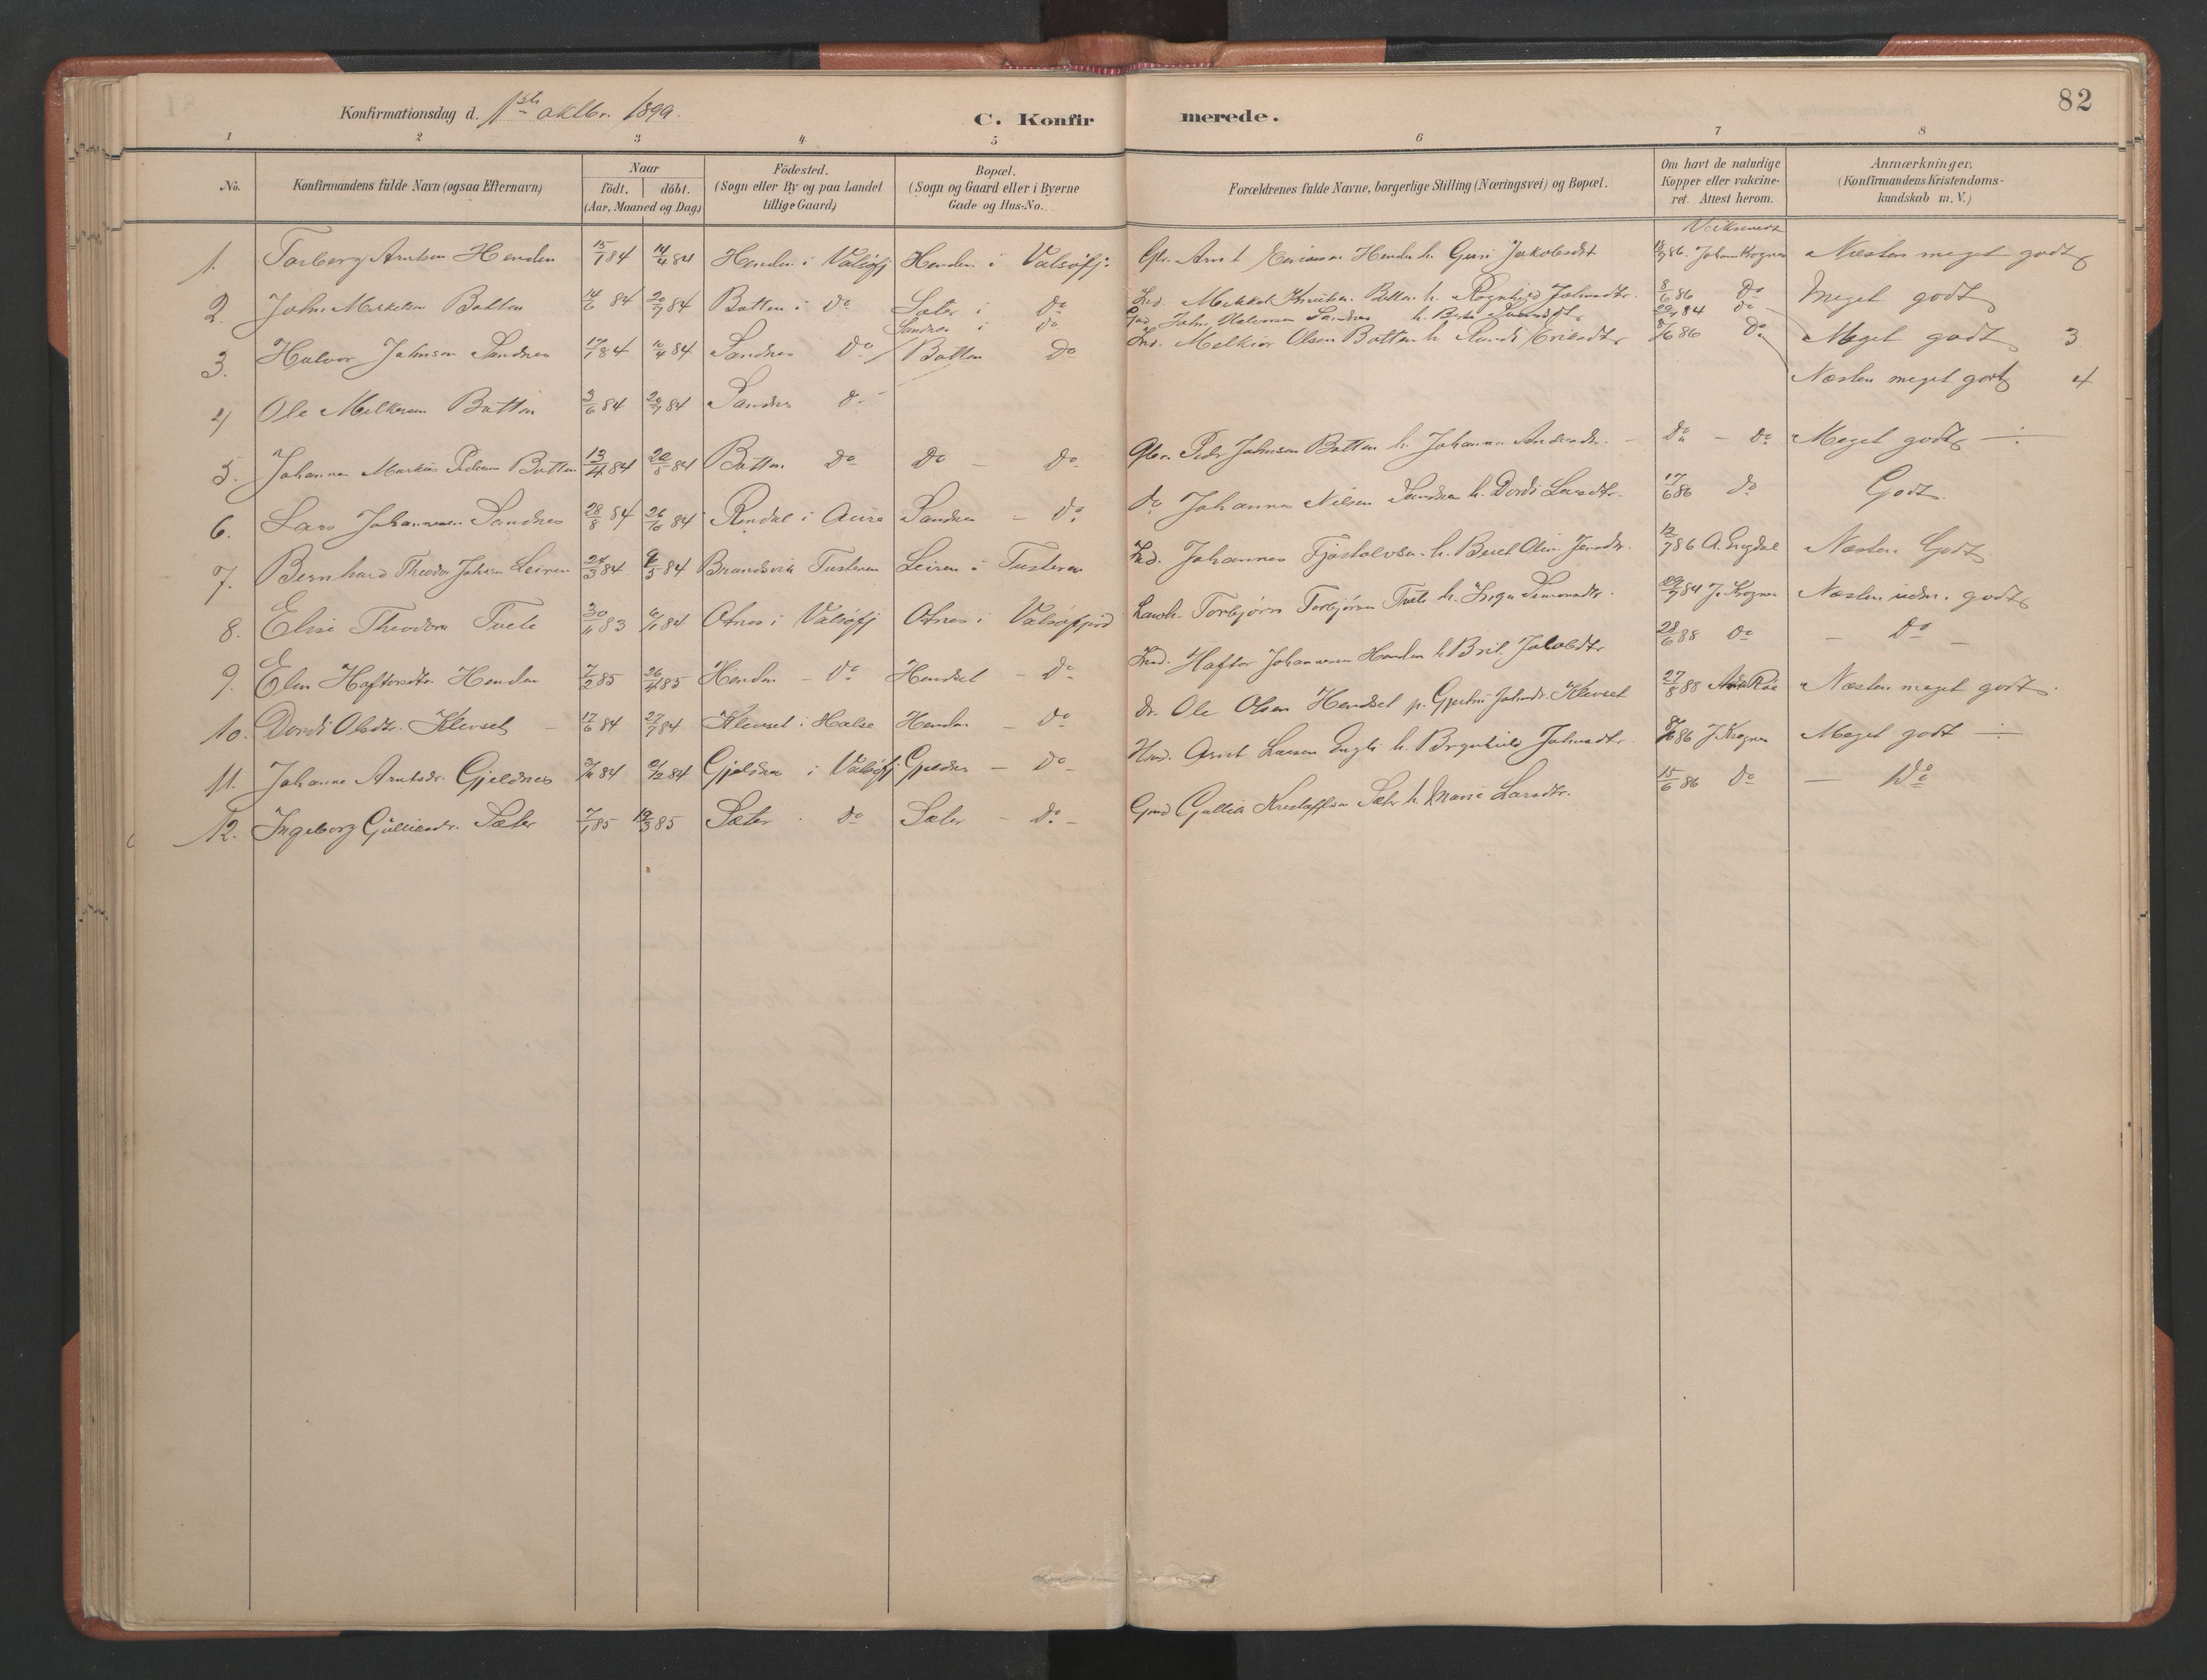 82
Konfirmationsdag d. 1ste oktbr. 1899.
C. Konfirmerede.
1 2 3 4 5 6 7 8
No. Konfirmandens fulde Navn (ogsaa Efternavn) Naar födt, döbt. (Aar, Maaned og Dag) Födested. (Sogn eller By og paa Landet tillige Gaard) Bopæl. (Sogn og Gaard eller i Byerne Gade og Hus-No. Forældrenes fulde Navne, borgerlige Stilling (Næringsvei) og Bopæl. Om havt de naturlige Kopper eller vakcineret. Attest herom. Anmærkninger. (Konfirmandens Kristendomskundskab m. V.)
1. Torberg Arntsen Henden 15/1 84 14/4 84 Henden i Valsøfj Henden i Valsøfj. Gbr. Arnt Henden h. Guri Jakobsdt 86. Johan Krognes Næsten meget godt
2. John Mekkelsen Botten 14/6 84 20/7 84 Botten i Do Sæter i Do Ind. Mekkel Botten h. Rognhild Johnsdtr. 8/6 86 Do Meget godt
3. Halvor Johnsen Sandnes 17/1 84 84 Sandnes Do Sandnes i Do John Halvorsen Sandnes h. 84 Do Meget godt 3
4 Ole Melkersen Botten 3/6 84 20/7 84 Sandnes Do Botten Do Ind. Melkior Olsen Botten h. Randi Eriksdtr 8/6 86 Do Næsten meget godt 4
5. Johannes Markus Pedersen Botten 13/4 84 20/5 84 Botten Do Do - Do Gbr. Peder Johnsen Botten h. Johanna Andersdtr. - Do - Do Meget godt -:
6. Lars Johannesen Sandnes 28/8 84 26/10 84 Rendal i Aure Sandnes - Do Do Johannes Nilsen Sandnes h. Dordi Larsdtr. 17/6 86 Do Godt.
7. Bernhard Theodor Johsen Leiren 24/3 84 84 Brandsvik Tusteren Leiren i Tusteren Ind. Johannes Fjostolvsen h. Beret Olin Jensdtr. 12/7 86 A. Engdal Næsten Godt.
8. Elise Theodora Tvete 30/11 83 6/1 84 Otnes i Valsøfj Otnes i Valsøfjord Torbjørn Torbjørnsen Tvete h. Inga Simonsdtr. 29/7 84 J. Krognes Næsten udm. godt
9. Elen Haftorsdtr. Henden 7/2 85 26/4 85 Henden - Do Hendset - Do Ind. Haftor Johannesen Henden h. Brit Jakobsdtr 28/6 88 Do - Do -
10. Dordi Olsdtr. Klevset - 17/6 84 27/7 84 Klevset i Halse Henden - Do Dr. Ole Olsen Hendset p. Gjertru Johnsdr. Klevset 27/8 88 Næsten meget godt.
11. Johanne Arntsdr. Gjeldnes 84 21/12 84 Gjeldnes i Valsøfj Gjeldnes - Do Larsen h. Brynhild Johnsdtr. 86 J. Krognes Meget godt -:
12. Ingeborg Gulliksdr. Sæter 7/1 85 19/3 85 Sæter . Do Sæter - Do - Gmd Gullik Kristoffersen Sæter h. Marie Larsdtr. 15/6 86 Do - Do